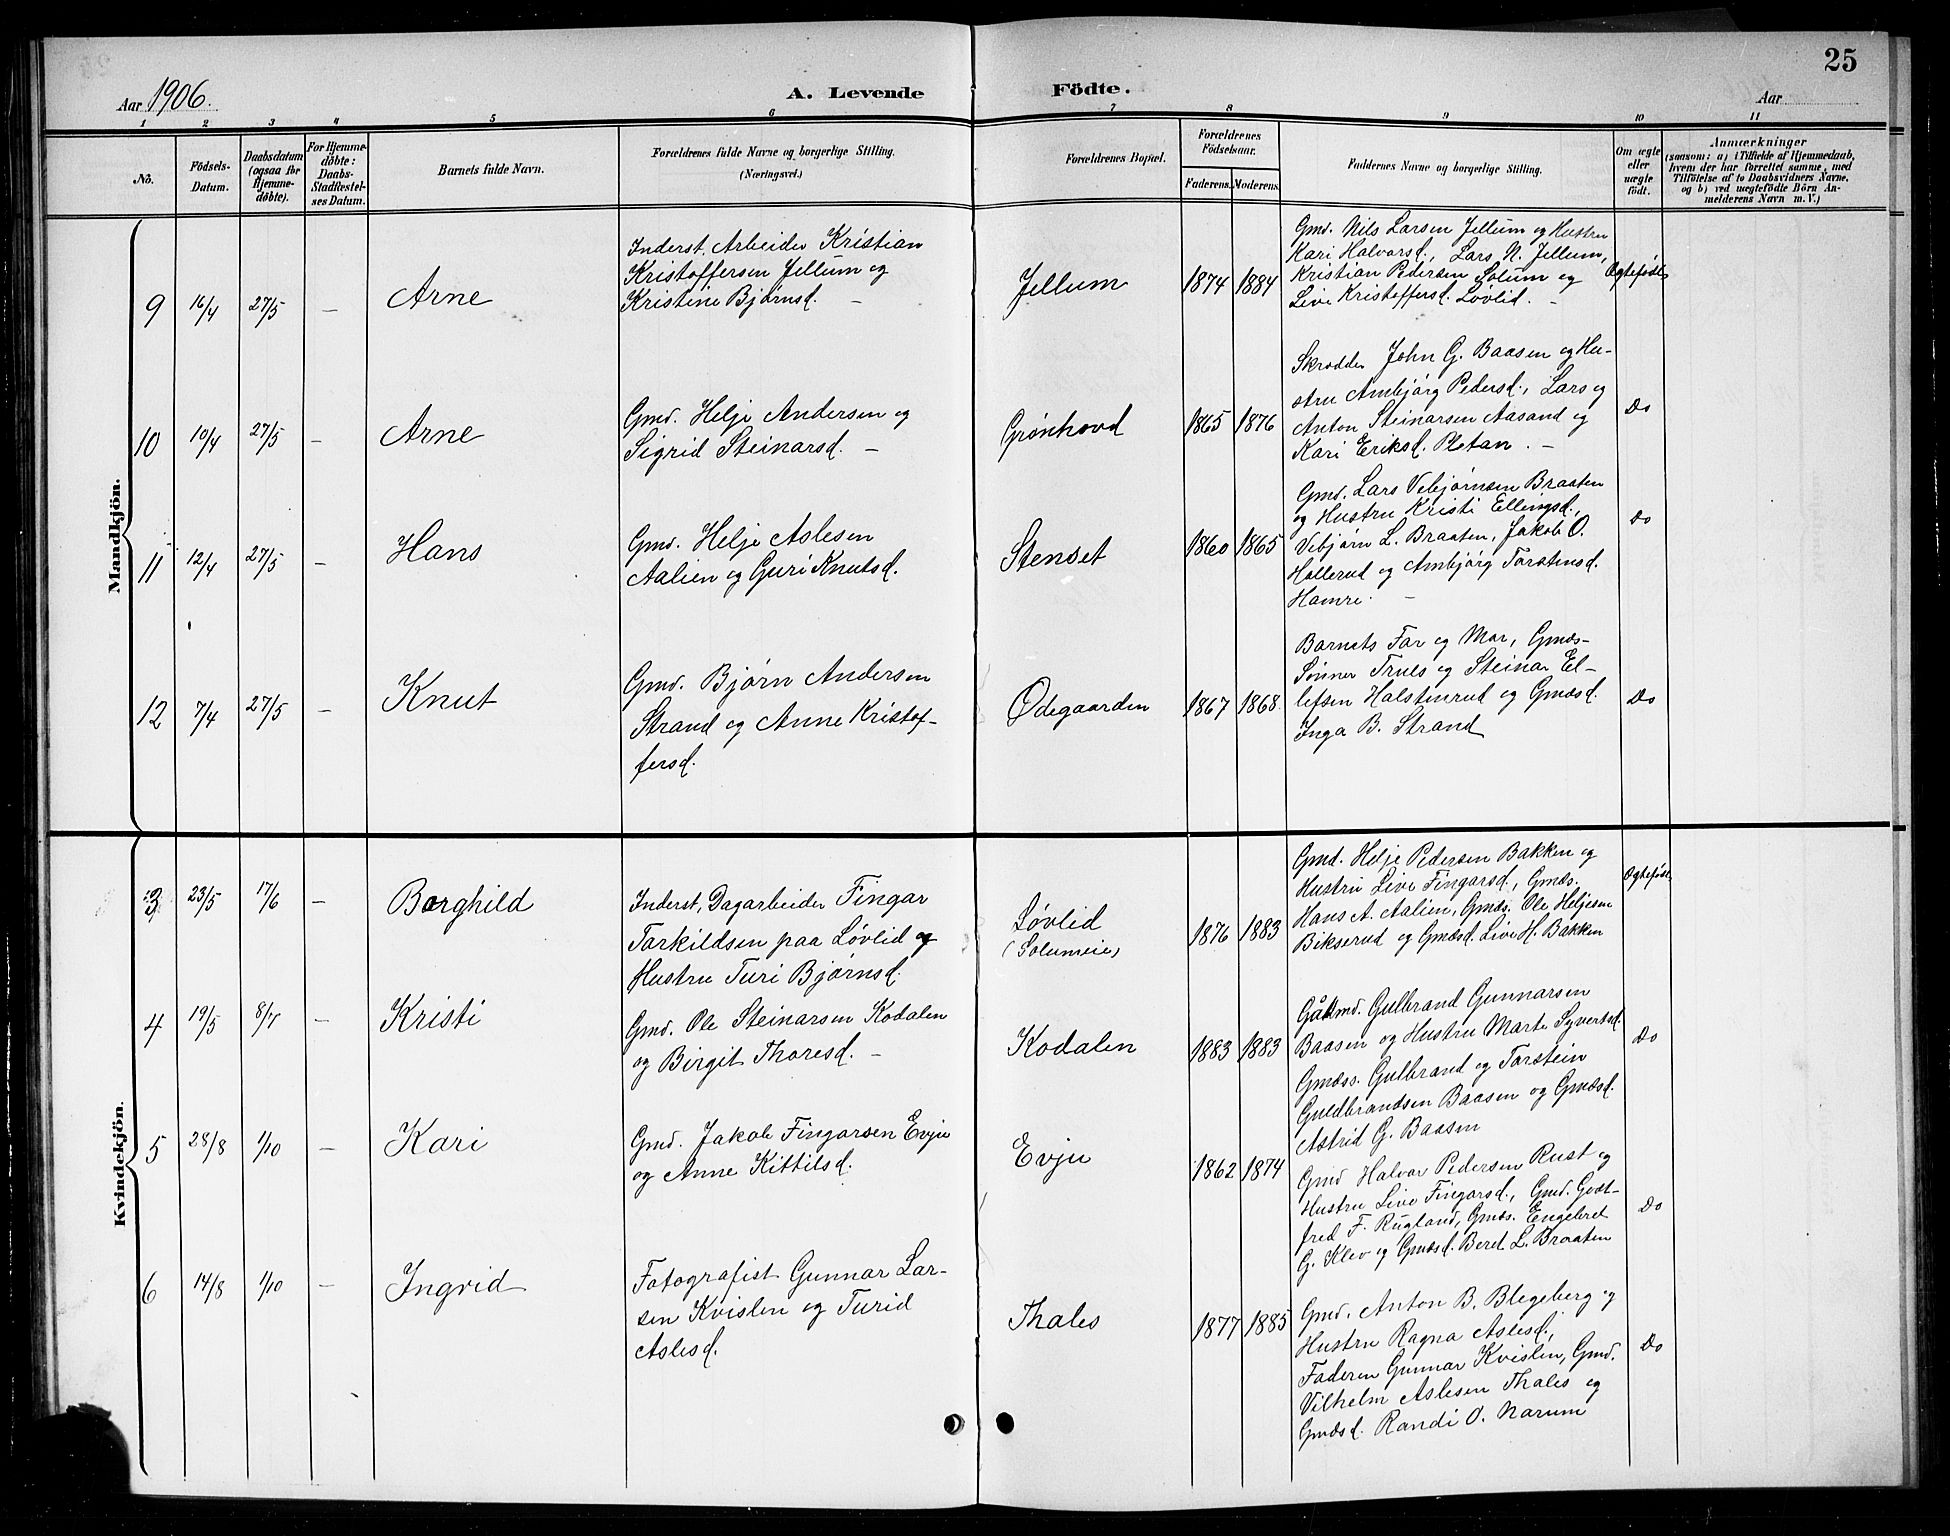 25
Aar 1906.
A. Levende
Födte.
Aar
1 2 3 4 5 6 7 8 9 10 11
No.
Födsels-
Datum.
Daabsdatum
(ogsaa for
Hjemme-
døbte).
For Hjemme-
døbte:
Daabs-
Stadfæstel-
ses Datum.
Barnets fulde Navn.
Forældrenes fulde Navne og borgerlige Stilling.
(Næringsvei.)
Forældrenes Bopæl.
Forældrenes
Födselsaar.
Faderens.
Moderens.
Faddernes Navne og borgerlige Stilling.
Om ægte
eller
uægte
födt.
Anmærkninger
(saasom: a) i Tilfælde af Hjemmedaab,
hvem der har forrettet samme, med
Tilföielse af to Daabsvidners Navne.
og b) ved uægtefödte Börn An-
melderens Navn m. V.)
Mandkjön.
9
16/4
27/5
—
Arne
Inderst, Arbeider Kristian
Kristoffersen Jellum og
Kristine Bjørnsd. —
Jellum
1874
1884
Gmd. Nils Larsen Jellum og Hustru
Kari Halvorsd., Lars N. Jellum,
Kristian Pedersen Solum og
Live Kristoffersd. Løvlid. —
Ægtefödt
10
10/4
27/5
—
Arne
Gmd. Helje Andersen og
Sigrid Steinarsd. —
Grønhovd
1865
1876
Skrædder John G. Baasen og Hu-
stru Ambjörg Pedersd., Lars og
Anton Steinarsen Aasand og
Kari Eriksd. Pletan. —
Do
11
12/4
27/5
—
Hans
Gmd. Helje Aslesen
Aalien og Guri Knutsd.
Stenset
1860
1865
Gmd. Lars Vebjørnsen Braaten
og Hustru Kristi Ellingsd.,
Vebjørn L. Braaten, Jakob O.
Hollerud og Ambjörg Torstensd.
Hamre. —
Do
12
7/4
27/5
—
Knut
Gmd. Bjørn Andersen
Strand og Anne Kristof-
fersd.
Ødegaarden
1867
1868
Barnets Far og Mor, Gmds-
Sønner Truls og Steinar El-
lefsen Halstenrud og Gmdsd.
Inga B. Strand
Do
Kvindekjön.
3
23/5
17/6
—
Borghild
Inderst, Dagarbeider Fingar
Torkildsen paa Løvlid og
Hustru Turi Bjørnsd.
Løvlid
(Solumeie)
1876
1883
Gmd. Helje Pedersen Bakken og
Hustru Live Fingarsd., Gmds.
Hans A. Aalien, Gmds. Ole Heljesen
Bikserud og Gmdsd. Live H. Bakken
Ægtefödt
4
19/5
8/7
—
Kristi
Gmd. Ole Steinarsen Kodalen
og Birgit Thoresd. —
Kodalen
1883
1883
Gulbrand Gunnarsen
Baasen og Hustru Marte Syvertsd.
Gmdss. Gulbrand og Torstein
Guldbrandsen Baasen og Gmdsd.
Astrid G. Baasen
Do
5
28/8
1/10
—
Kari
Gmd. Jakob Fingarsen Evju
og Anne Kittilsd.
Evju
1862
1874
Gmd Halvor Pedersen Rust og
Hustru Live Fingarsd., Gmd. Godt-
fred F. Rugland, Gmds. Engebret
G. Klev og Gmdsd. Beret L. Braaten
Do
6
14/8
1/10
—
Ingrid
Fotografist Gunnar Lar-
sen Kvislen og Turid
Aslesd.
Thales
1877
1885
Gmd. Anton B. Blegeberg og
Hustru Ragna Aslesd.,
Faderen Gunnar Kvislen, Gmd.
Vilhelm Aslesen Thales og
Gmdsd. Randi O. Narum
Do